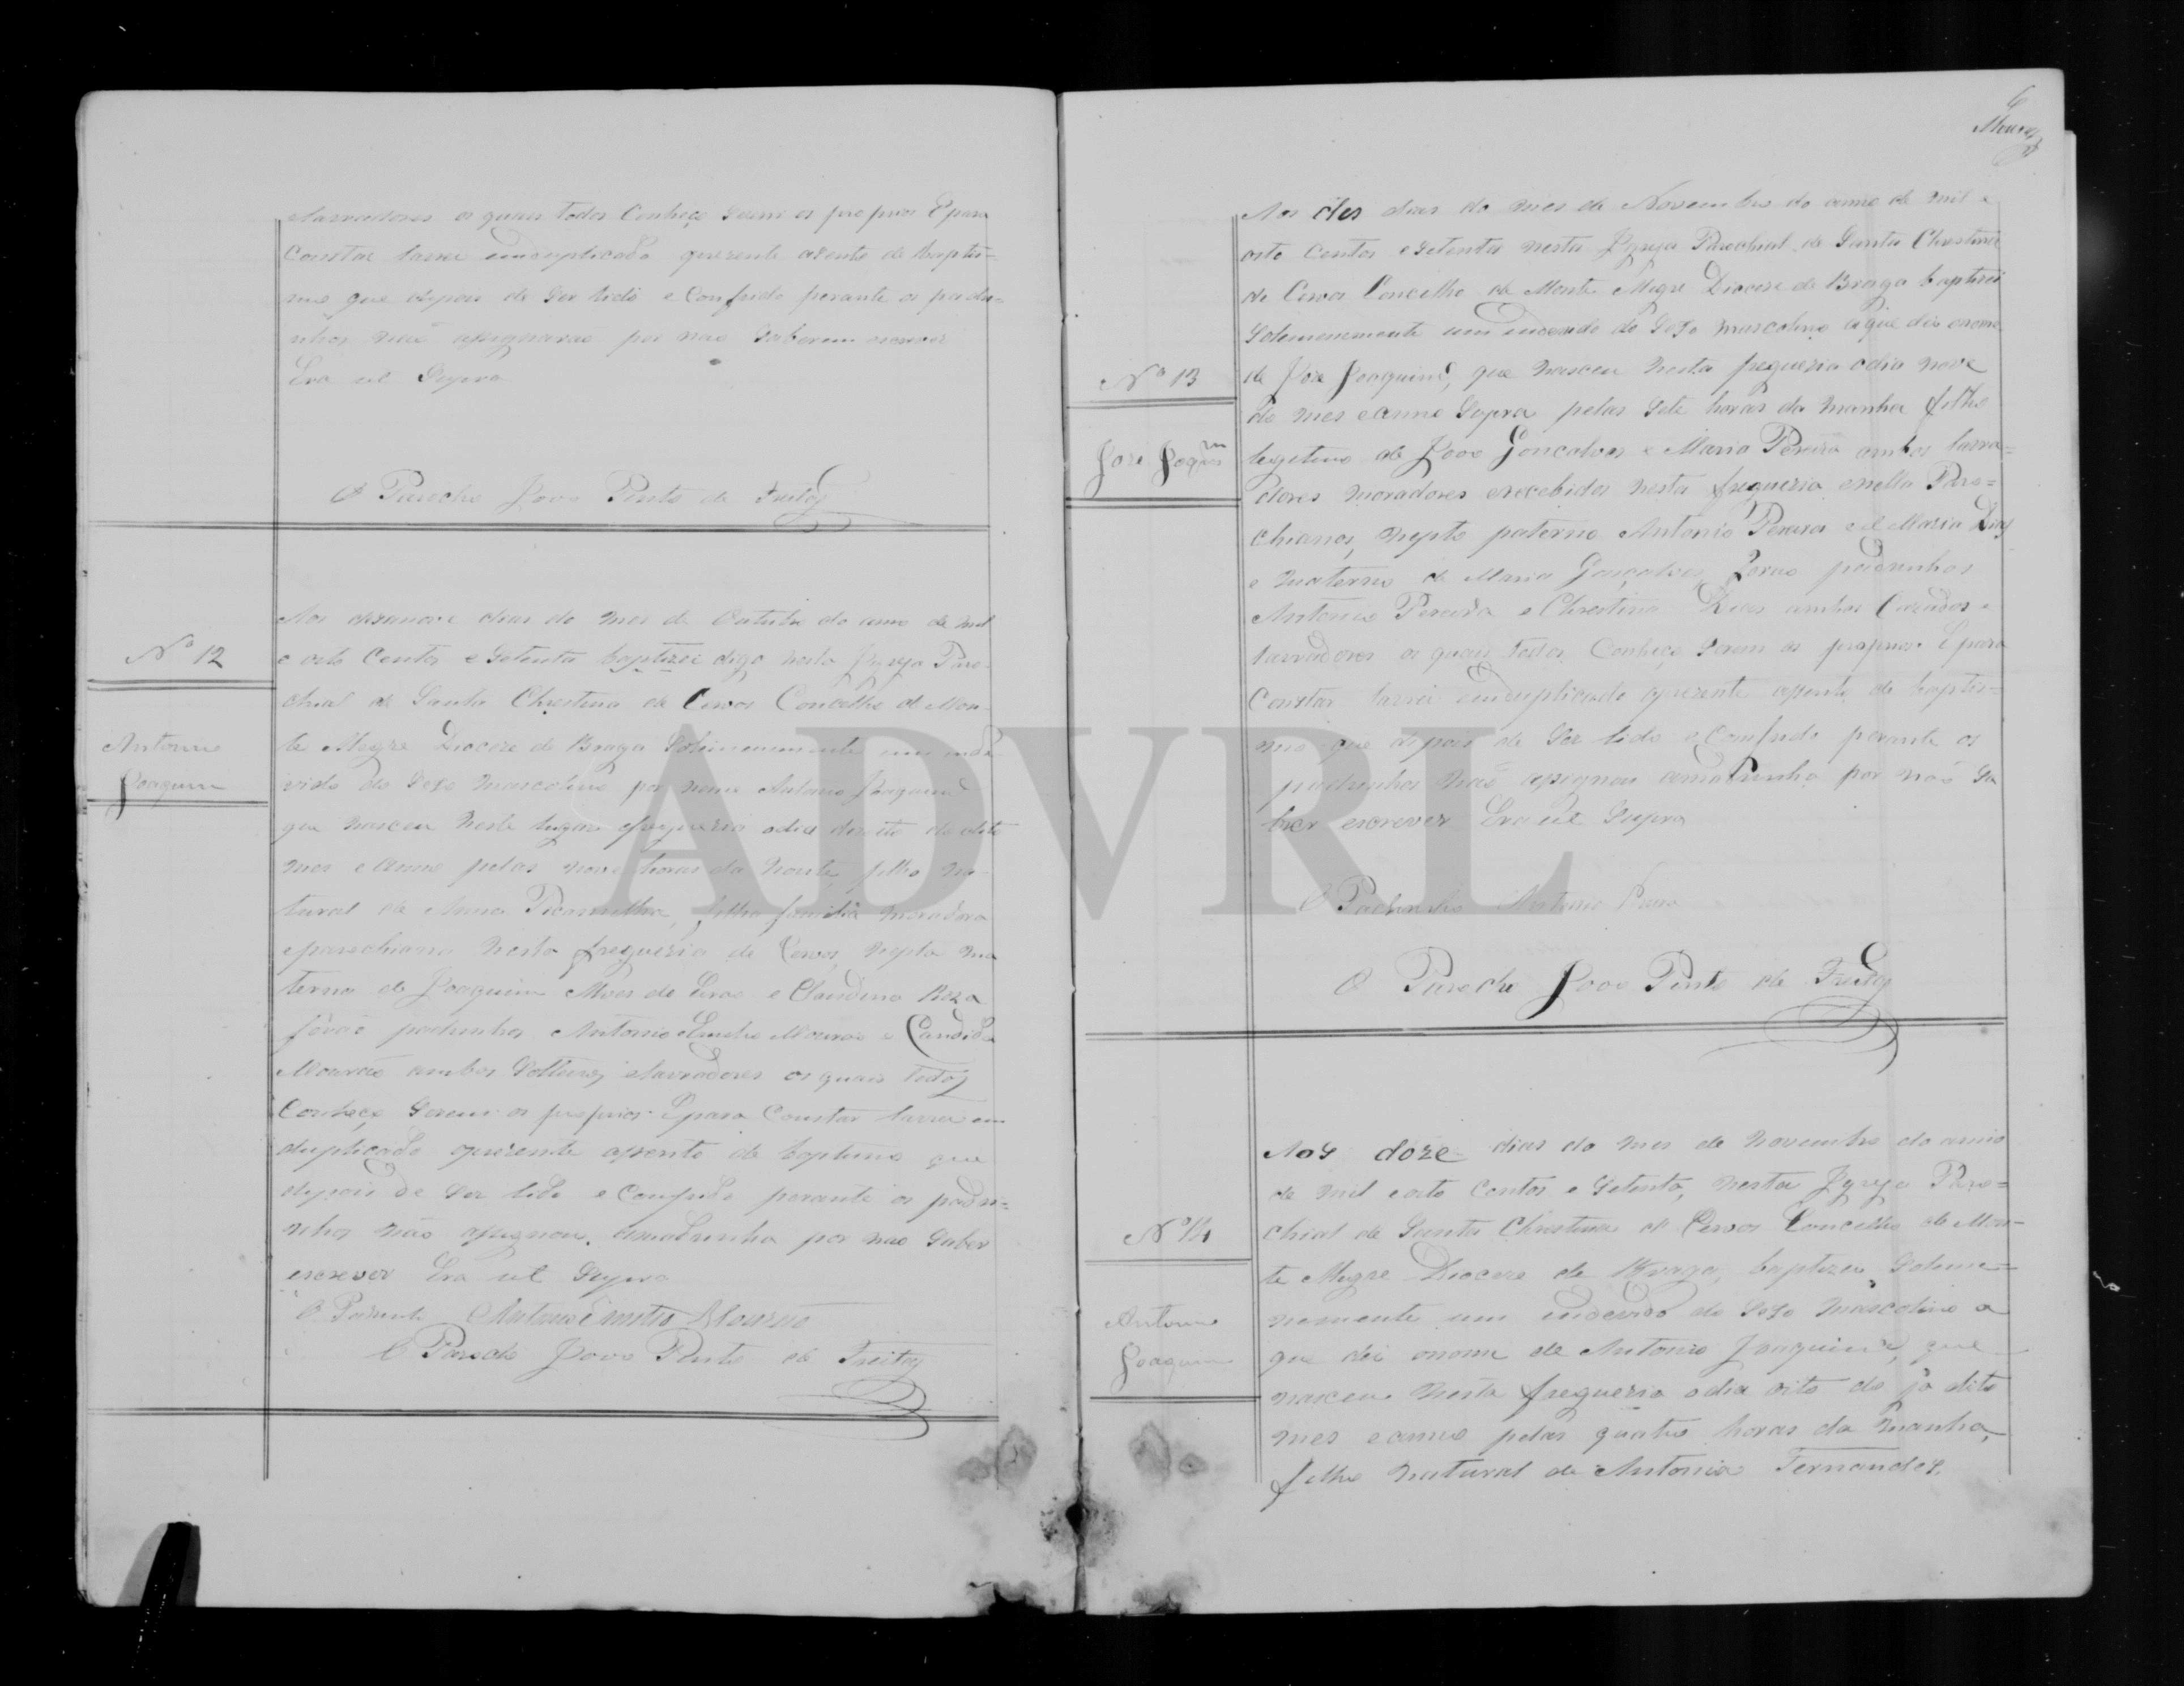 Lavradores os quaes todos Conheço serem os proprios E para
Constar lavrei emduplicado oprezente acento de baptis=
mo que depois de Ser lido e Conferido perante os padri=
nhos naõ asignaraõ por nao Saberem escrever
Era ut Supra
O Parocho Joao Pinto de Freitas
Nº 12
Antonio
Joaquim
Aos dezanove dias do mes de Outubro do anno de mil
e oito Centos e Setenta baptizei digo nesta Igreja Paro-
chial de Santa Chrestina de Cervos Concelho de Mon-
te Alegre Diocese de Braga Solemnemente um indi-
viduo do Sexo Masculino por nome Antonio Joaquim
que nasceu neste lugar efreguezia odia dezoito do dito
mes e anno pelas nove horas da noute, filho na-
tural de Anna filha familia moradora
eparochiana nesta freguezia de Cervos nepto ma
terno de Joaquim Alves de e Claudina Roza
foraõ padrinhos Antonio Emilio Mourao e Candida
Mouraõ ambos Solteiros elavradores os quais todos
Conheço Serem os proprios E para Constar lavrei em
duplicado oprezente asento de baptismo que
depois de Ser lido e Conferido perante os padri=
nhos não asignou amadrinha por nao Saber
escrever Era ut Supra
O Padrinho Antonio Emilio Mourão
O Parocho Joao Pinto de Freitas
6
Mourão
Nº 13
José Joaqm
Aos des dias do mes de Novembro do anno de mil e
oito Centos eSetenta nesta Igreja Parochial de Santa Chrestina
de Cervos Concelho de Monte Alegre Diocese de Braga baptizei
Solemnemente um do Sexo masculino aque dei onome
de Joze Joaquim, que nasceu nesta freguezia odia nove
do mes eanno Supra pelas Sete horas da manha filho
legitimo de Joao Goncalves e Maria Pereira ambos lavra=
dores moradores erecebidos nesta freguezia enella Paro=
chianos, nepto paterno Antonio Pereira e Maria Dias
e Materno de Maria Gonçalves, Foraõ padrinhos
Antonio Pereira e Chrestina Dias ambos Cazados e
lavradores os quais todos Conheço Serem os proprios E para
Constar lavrei emduplicado oprezente assento de baptis=
mo que depois de Ser lido eConferido perante os
padrinhos naõ asignou amadrinha por naõ Sa
ber escrever Era ut Supra
O Padrinho Antonio
O Parocho Joao Pinto de Freitas
Nº 14
Antonio
Joaquim
Aos dôze dias do mes de novembro do anno
de mil eoito Centos e Setenta, nesta Igreja Paro=
chial de Santa Christina de Cervos Concelho de Mon-
te Alegre Diocese de Braga, baptizei Solemne=
nemente um do Sexo Masculino a
que dei onome de Antonio Joaquim, que
nasceu nesta freguezia odia oito do ja dito
mes eanno pelas quatro horas da manha,
filho natural de Antonia Fernandes,
ADVRL